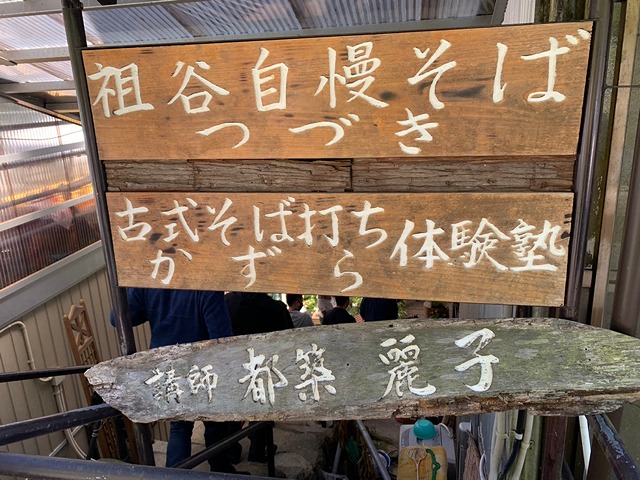 祖谷自慢そば
つづき
古式そば打ち体験塾
かずら
講師 都築 麗子